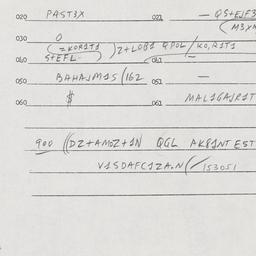 020 PAST3X 021 — QS+EJF3
(M3XN
030 O
(=KOR1T1) Z+LOB1 QPOL/KO,R1T1
040 S+EFL 041 —
050 BAHAJM1S/162 051 —
060 $ 061 MAL1GAJR1T
900 ((DZ+AMOZ+1N QGL AK81NT EST
V1SDAFC1ZA.N(/153051